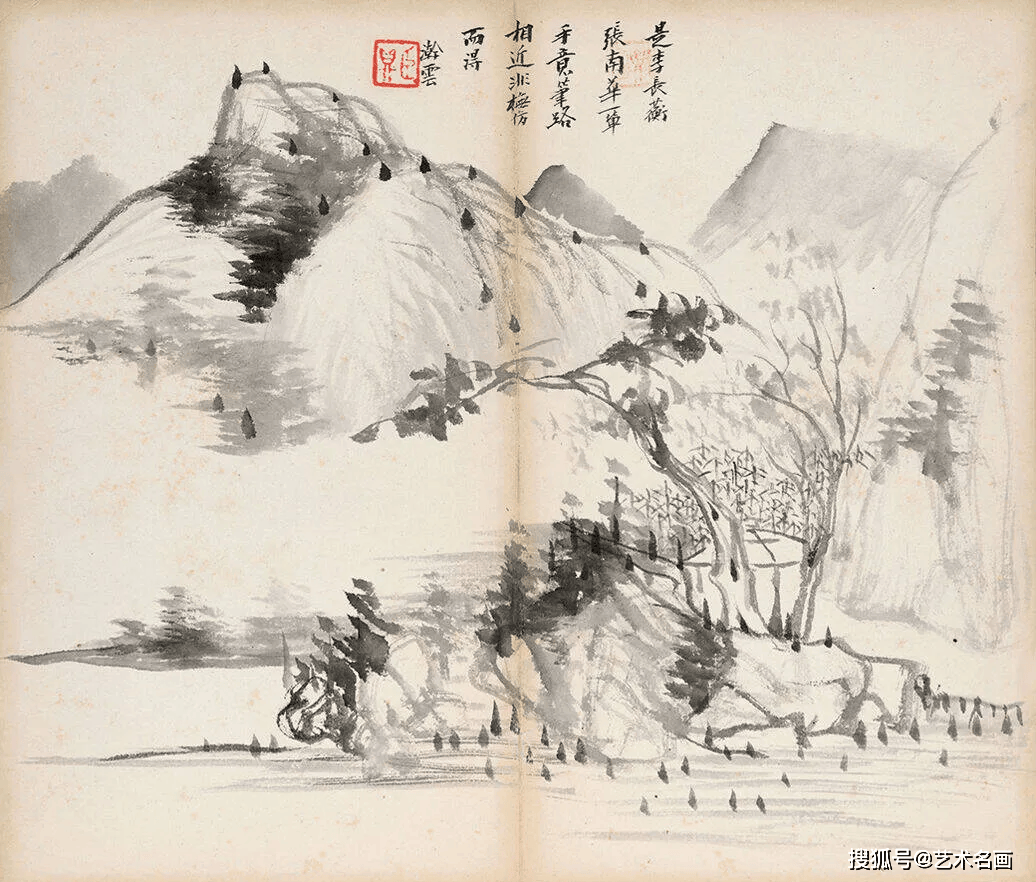 是李長蘅
張南華一輩
手意筆路
相近非橅仿
而得
澣雲
搜狐号@艺术名画